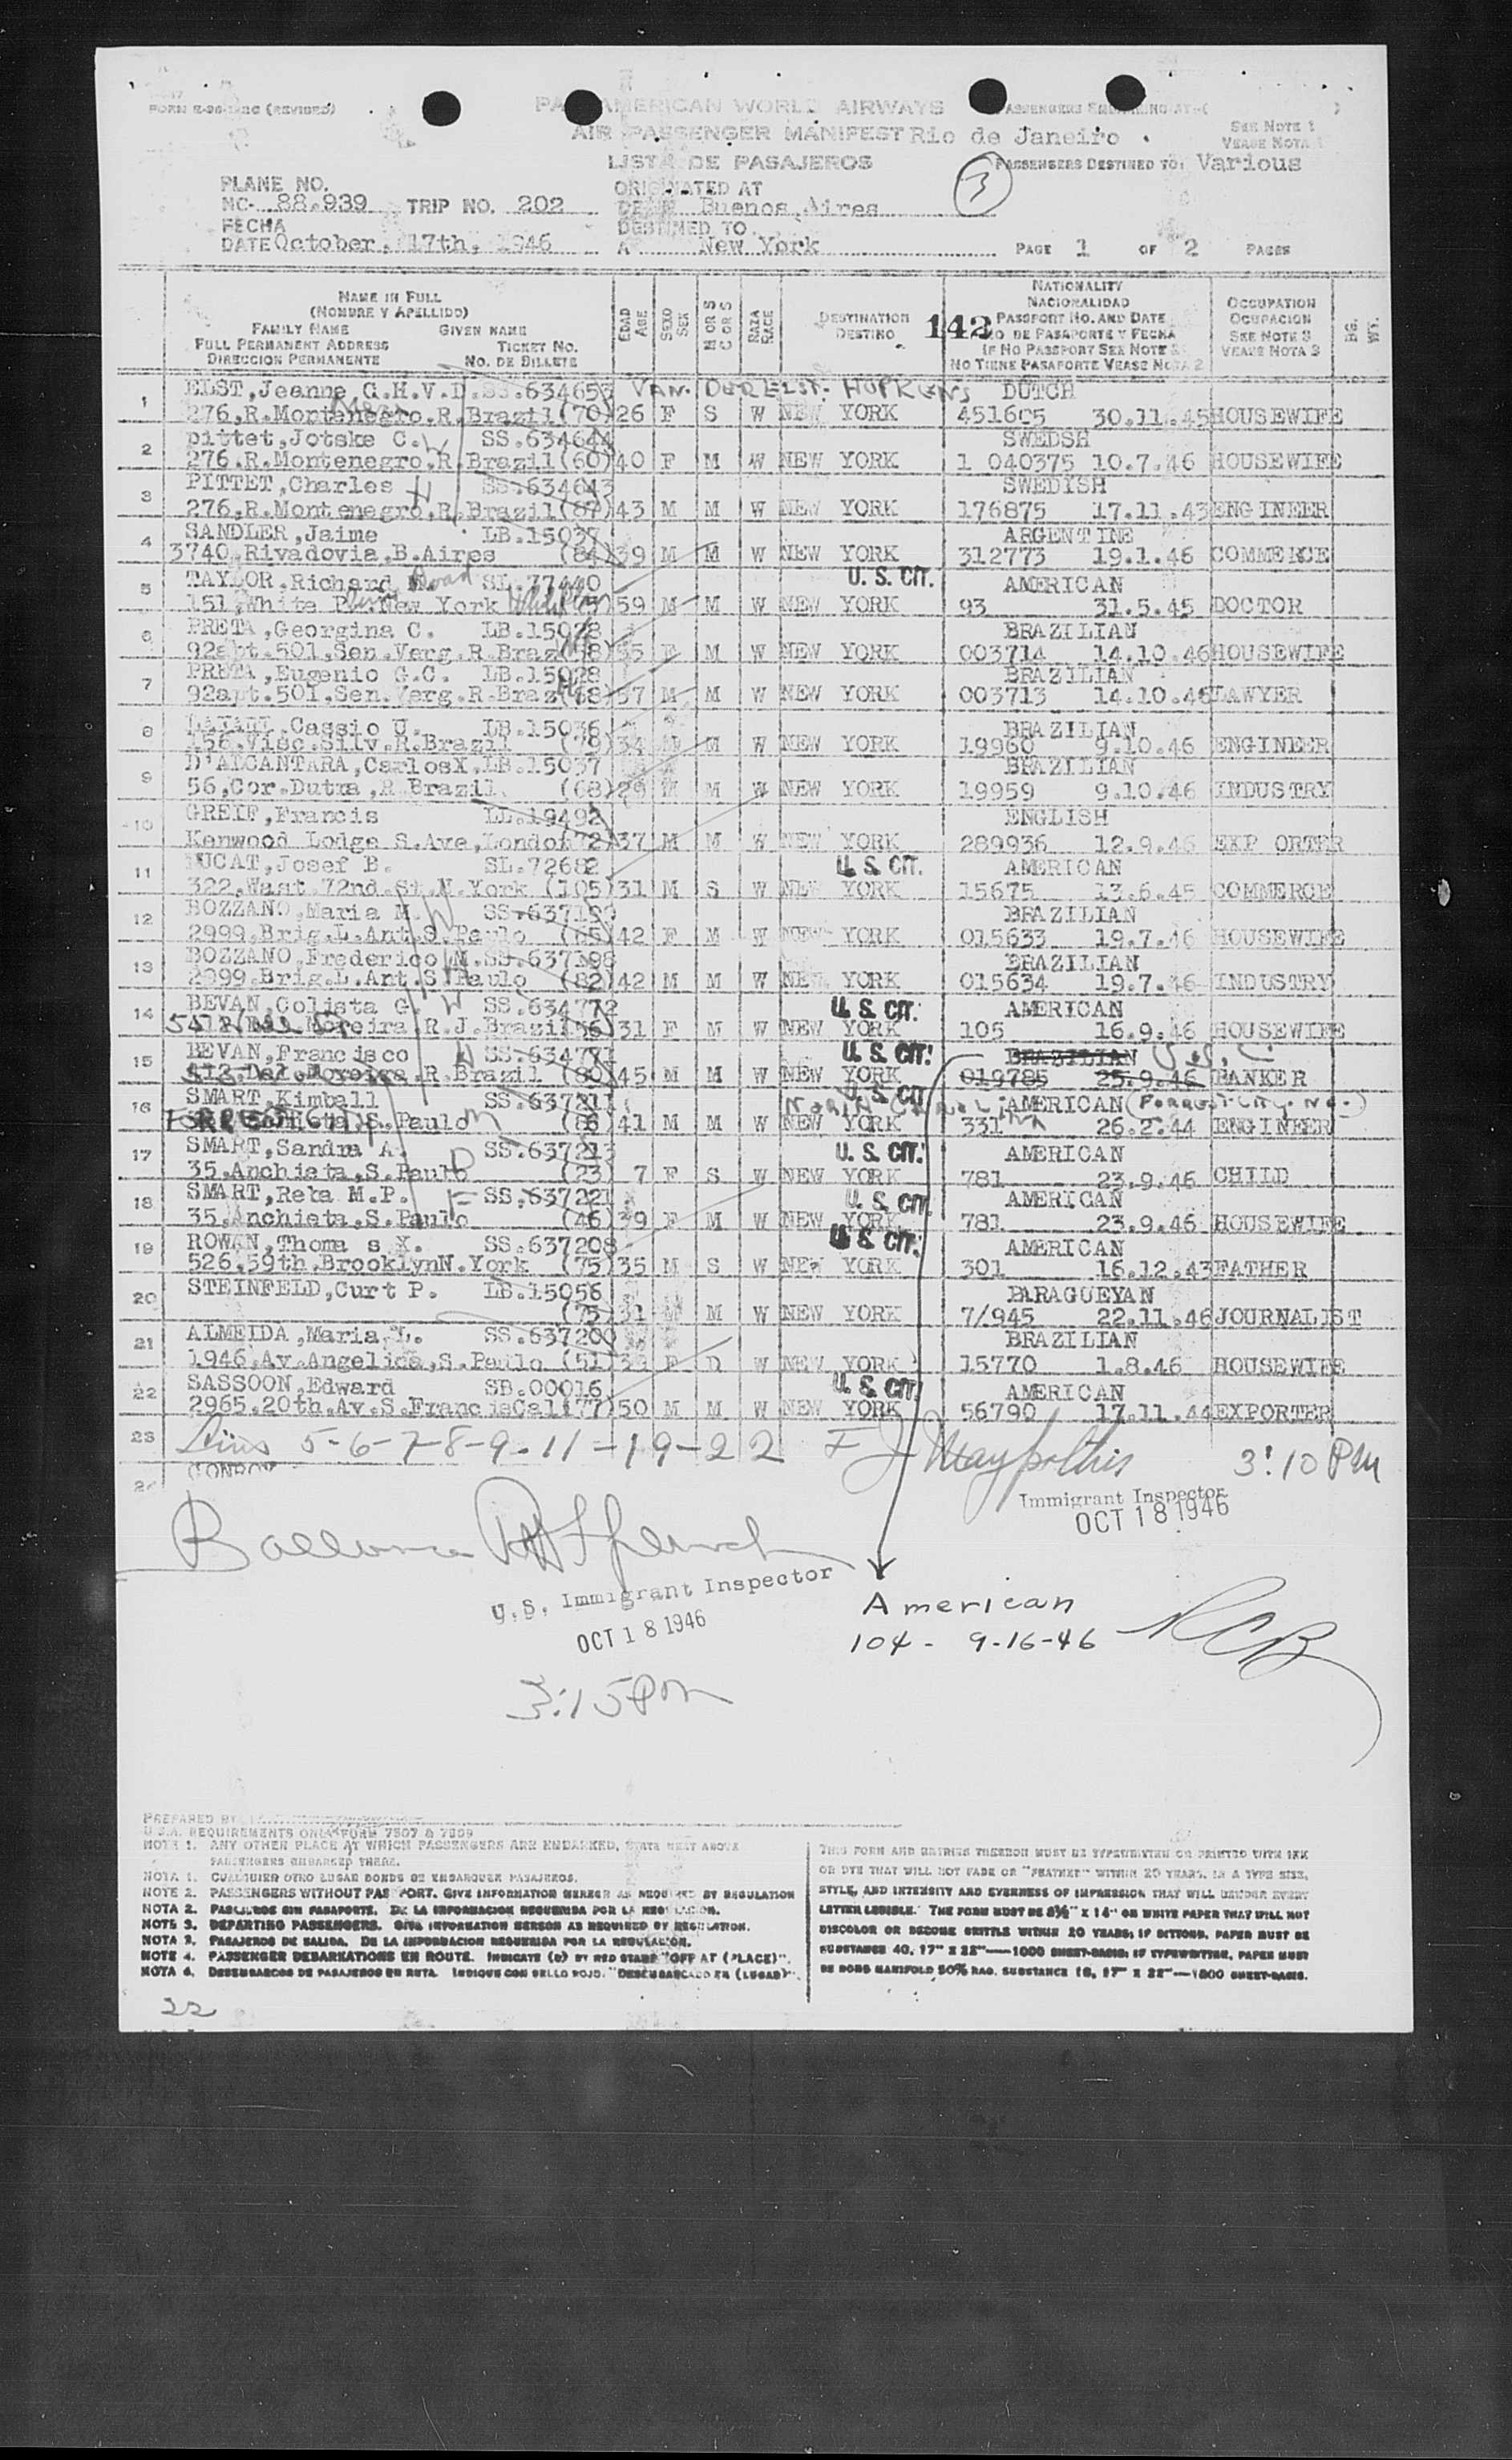 FORM (REVISED)
PAN AMERICAN WORLD AIRWAYS
AIR PASSENGER MANIFEST Rio de Janeiro
SEE NOTE 1
VEASE NOTA 1
LISTA DE PASAJEROS
PASSENGERS DESTINED TO: Various
3
PLANE NO.
NC- 88.939 TRIP NO. 202
ORIGINATED AT
DE Buenos Aires
FECHA
DATE October, 17th, 1946
DESTINED TO
A New York
PAGE 1 OF 2 PAGES
NAME IN FULL
(NOMBRE Y APELLIDO)
FAMILY NAME GIVEN NAME
FULL PERMANENT ADDRESS TICKET NO.
DIRECCION PERMANENTE NO. DE BILLETE
EDAD AGE
SEXO SEX
M OR S C OR S
RAZA RACE
DESTINATION
DESTINO
142
NATIONALITY
NACIONALIDAD
PASSPORT NO. AND DATE
NO DE PASAPORTE Y FECHA
IF NO PASSPORT SEE NOTE 2
NO TIENE PASAPORTE VEASE NOTA 2
OCCUPATION
OCUPACION
SEE NOTE 3
VEASE NOTA 3
1 ELST,Jeanne G.H.V.D.SS.634653 VAN. DER ELST. HOPKENS DUTCH
276,R.Montenegro.R.Brazil(70)26 F S W NEW YORK 451605 30.11.45 HOUSEWIFE
2 pittet,Jotske C. SS.634644 SWEDSH
276.R.Montenegro.R.Brazil(60)40 F M W NEW YORK 1 040375 10.7.46 HOUSEWIFE
3 PITTET,Charles H SS.634643 SWEDISH
276,R.Montenegro.R.Brazil(87)43 M M W NEW YORK 176875 17.11.43 ENGINEER
4 SANDLER,Jaime LB.15037 ARGENTINE
3740,Rivadovia.B.Aires (84)39 M M W NEW YORK 312773 19.1.46 COMMERCE
5 TAYLOR.Richard SL.77440 U. S. CIT. AMERICAN
151,White New York 59 M M W NEW YORK 93 31.5.45 DOCTOR
6 PRETA,Georgina C. LB.15028 BRAZILIAN
92apt.501,Sen.Verg.R.Braz 55 F M W NEW YORK 003714 14.10.46 HOUSEWIFE
7 PRETA,Eugenio G.C. LB.15028 BRAZILIAN
92apt.501.Sen.Verg.R.Braz(68)57 M M W NEW YORK 003713 14.10.46 LAWYER
8 Cassio U. LB.15036 BRAZILIAN
456.Visc.Silv.R.Brazil (79)34 M M W NEW YORK 19960 9.10.46 ENGINEER
9 D'ALCANTARA,CarlosX.LB.15037 BRAZILIAN
56,Cor.Dutra,R Brazil. (68)29 M M W NEW YORK 19959 9.10.46 INDUSTRY
10 GREIF,Francis LL.19492 ENGLISH
Kenwood Lodge S.Ave,London(72)37 M M W NEW YORK 289936 12.9.46 EXPORTER
11 MUCAT,Josef B. SL.72682 U. S. CIT. AMERICAN
322.Wast 72nd.St.N.York (105)31 M S W NEW YORK 15675 13.6.45 COMMERCE
12 BOZZANO,Maria M. W SS.637199 BRAZILIAN
2999.Brig.L.Ant.S.Paulo (85)42 F M W NEW YORK 015633 19.7.46 HOUSEWIFE
13 BOZZANO,Frederico M.SS.637198 BRAZILIAN
2999.Brig.L.Ant.S.Paulo (82)42 M M W NEW YORK 015634 19.7.46 INDUSTRY
14 BEVAN,Colista G. W SS.634772 U. S. CIT. AMERICAN
Moreira.R.J.Brazil(56)31 F M W NEW YORK 105 16.9.46 HOUSEWIFE
15 BEVAN,Francisco H SS.634771 U. S. CIT. BRAZILIAN U.S.C.
512.Del.Moreira.R.Brazil (80)45 M M W NEW YORK 019785 25.9.46 BANKER
16 SMART,Kimball SS.637211 U. S. CIT NORTH CAROLINA AMERICAN (FORREST CITY. NC.)
S.Paulo (86)41 M M W NEW YORK 331 26.2.44 ENGINEER
17 SMART,Sandra A. SS.637213 U. S. CIT. AMERICAN
35.Anchieta,S.Paulo D (23) 7 F S W NEW YORK 781 23.9.46 CHILD
18 SMART,Reba M.P. SS.637221 U. S. CIT. AMERICAN
35.Anchieta,S.Paulo (46)39 F M W NEW YORK 781 23.9.46 HOUSEWIFE
19 ROWAN,Thoma s X. SS.637208 U. S. CIT. AMERICAN
526.59th.BrooklynN.York (75)35 M S W NEW YORK 301 16.12.43 FATHER
20 STEINFELD,Curt P. LB.15056 PARAGUEYAN
(75)31 M M W NEW YORK 7/945 22.11.46 JOURNALIST
21 ALMEIDA,Maria L. SS.637200 BRAZILIAN
1946.Av.Angelica,S.Paulo (51) F D W NEW YORK 15770 1.8.46 HOUSEWIFE
22 SASSOON,Edward SB.00016 U. S. CIT. AMERICAN
2965.20th.Av.S.FrancisCali(77)50 M M W NEW YORK 56790 17.11.44 EXPORTER
23 Lines 5-6-7-8-9-11-19-22 3:10 PM
24 CONROY
Immigrant Inspector
OCT 18 1946
Balance
U.S. Immigrant Inspector
OCT 18 1946
3:15 PM
American
104- 9-16-46 RCB
PREPARED BY
U.S.A. REQUIREMENTS ONLY FORM 7507 & 7509
NOTE 1. ANY OTHER PLACE AT WHICH PASSENGERS ARE EMBARKED, STATE NEXT ABOVE
PASSENGERS EMBARKED THERE.
NOTA 1. CUALQUIER OTRO LUGAR DONDE SE EMBARQUEN PASAJEROS.
NOTE 2. PASSENGERS WITHOUT PASSPORT. GIVE INFORMATION HEREON AS REQUIRED BY REGULATION
NOTA 2. PASAJEROS SIN PASAPORTE. DE LA INFORMACION REQUERIDA POR LA REGULACION.
NOTE 3. DEPARTING PASSENGERS. GIVE INFORMATION HEREON AS REQUIRED BY REGULATION.
NOTA 3. PASAJEROS DE SALIDA. DE LA INFORMACION REQUERIDA POR LA REGULACION.
NOTE 4. PASSENGER DEBARKATIONS EN ROUTE. INDICATE (@) BY RED STAMP "OFF AT (PLACE)".
NOTA 4. DESEMBARCOS DE PASAJEROS EN RUTA. INDIQUE CON SELLO ROJO. "DESEMBARCADO EN (LUGAR)".
THIS FORM AND ENTRIES THEREON MUST BE TYPEWRITTEN OR PRINTED WITH INK
OR DYE THAT WILL NOT FADE OR "FEATHER" WITHIN 20 YEARS, IN A TYPE SIZE,
STYLE, AND INTENSITY AND EVENNESS OF IMPRESSION THAT WILL RENDER EVERY
LETTER LEGIBLE. THE FORM MUST BE 8½" X 14" ON WHITE PAPER THAT WILL NOT
DISCOLOR OR BECOME BRITTLE WITHIN 20 YEARS; IF DITTOED, PAPER MUST BE
SUBSTANCE 40, 17" X 22"—1000 SHEET-BASIS; IF TYPEWRITTEN, PAPER MUST
BE BOND MANIFOLD 50% RAG, SUBSTANCE 16, 17" X 22"—1000 SHEET-BASIS.
22